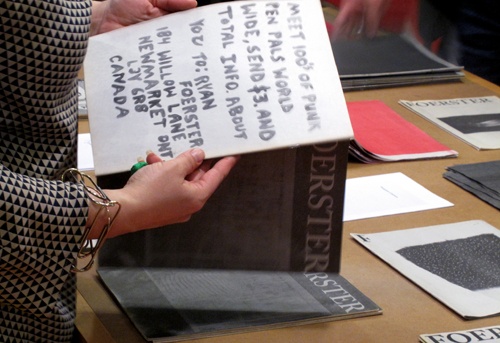 MEET 100'S OF PUNK
PEN PALS WORLD
WIDE, SEND $3. AND
TOTAL INFO. ABOUT
YOU TO: RYAN
FOERSTER
184 WILLOW LANE
NEWMARKET ONT
L3Y 6R8
CANADA
FOERSTER
FOERSTER
FOERSTER
FOERSTER